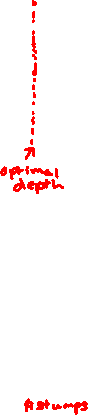 optimal
depth
# stumps